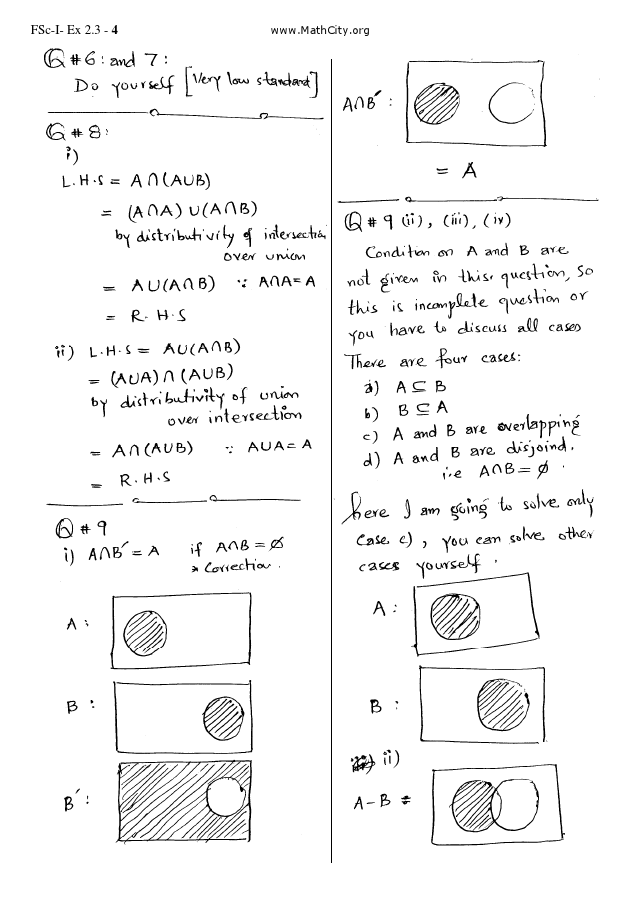 FSc-I- Ex 2.3 - 4
www.MathCity.org
Q # 6: and 7:
Do yourself [Very low standard]
Q # 8:
i)
L.H.S = A∩(A∪B)
= (A∩A) ∪(A∩B)
by distributivity of intersection
over union
= A∪(A∩B) ∵ A∩A = A
= R.H.S
ii) L.H.S = A∪(A∩B)
= (A∪A)∩(A∪B)
by distributivity of union
over intersection
= A∩(A∪B) ∵ A∪A = A
= R.H.S
Q # 9
i) A∩B′ = A if A∩B = ∅
* Correction.
A :
B :
B′ :
A∩B′ :
= A
Q # 9 (ii), (iii), (iv)
Condition on A and B are
not given in this question, So
this is incomplete question or
you have to discuss all cases
There are four cases:
a) A ⊆ B
b) B ⊆ A
c) A and B are overlapping
d) A and B are disjoind.
i.e A∩B = ∅.
here I am going to solve only
case c), you can solve other
cases yourself.
A :
B :
ii)
A-B =